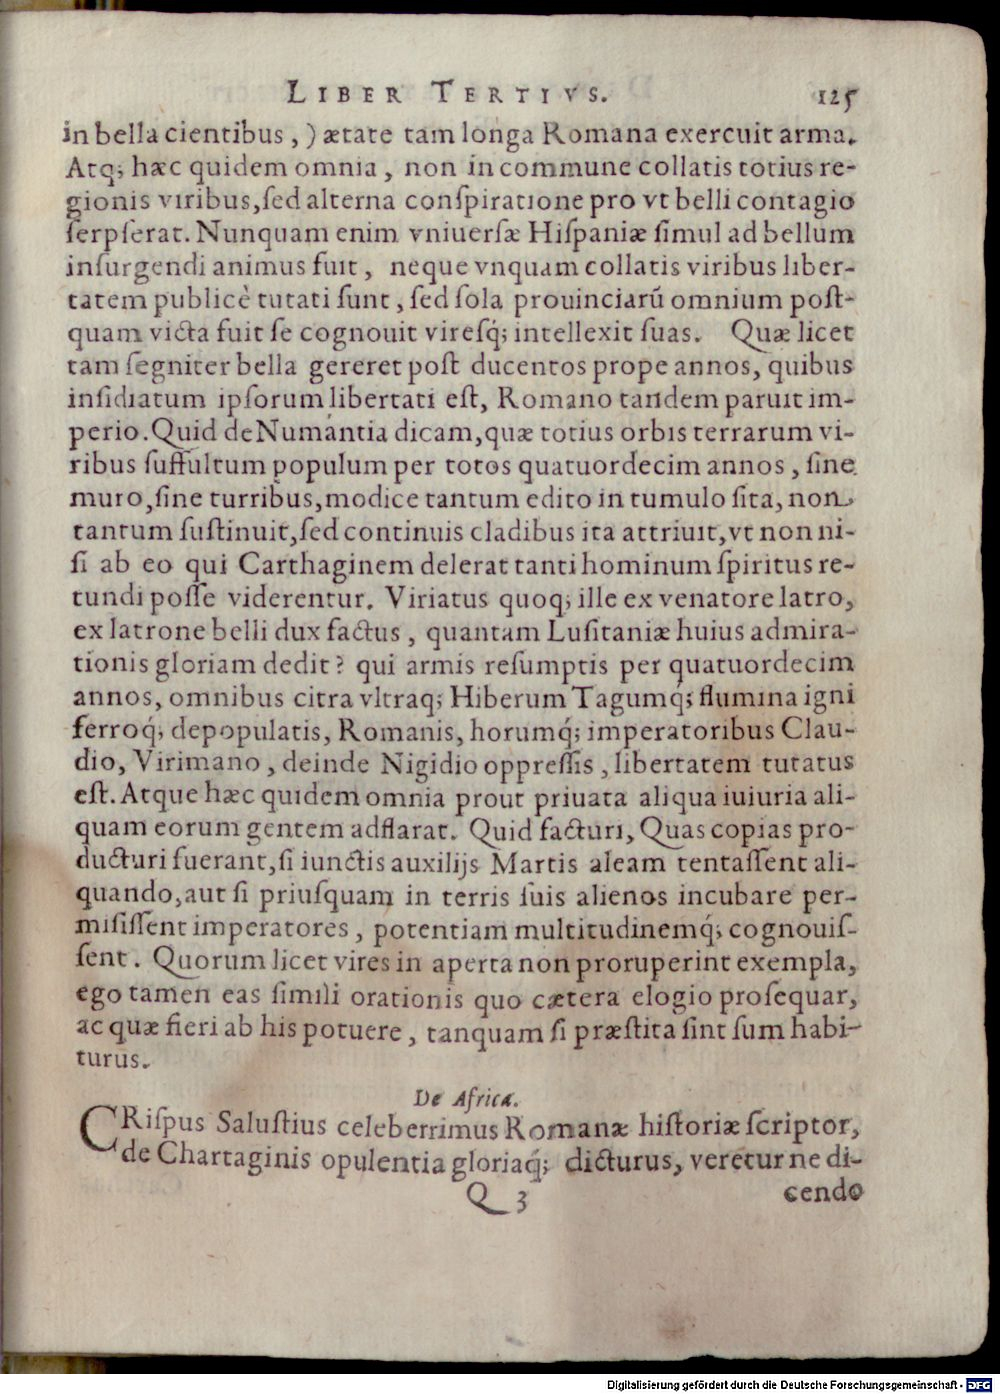 LIBER TERTIVS. 125
in bella cientibus, ) ætate tam longa Romana exercuit arma.
Atq; hæc quidem omnia, non in commune collatis totius re-
gionis viribus, ſed alterna conſpiratione pro vt belli contagio
ſerpſerat. Nunquam enim vniuerſæ Hiſpaniæ ſimul ad bellum
inſurgendi animus fuit, neque vnquam collatis viribus liber-
tatem publicè tutati ſunt, ſed ſola prouinciarū omnium poſt-
quam victa fuit ſe cognouit viresq́; intellexit ſuas. Quæ licet
tam ſegniter bella gereret poſt ducentos prope annos, quibus
inſidiatum ipſorum libertati eſt, Romano tandem paruit im-
perio. Quid de Numantia dicam, quæ totius orbis terrarum vi-
ribus ſuffultum populum per totos quatuordecim annos, ſine
muro, ſine turribus, modice tantum edito in tumulo ſita, non
tantum ſuſtinuit, ſed continuis cladibus ita attriuit, vt non ni-
ſi ab eo qui Carthaginem delerat tanti hominum ſpiritus re-
tundi poſſe viderentur. Viriatus quoq; ille ex venatore latro,
ex latrone belli dux factus, quantam Luſitaniæ huius admira-
tionis gloriam dedit? qui armis reſumptis per quatuordecim
annos, omnibus citra vltraq; Hiberum Tagumq́; flumina igni
ferroq́; depopulatis, Romanis, horumq́; imperatoribus Clau-
dio, Virimano, deinde Nigidio oppreſſis, libertatem tutatus
eſt. Atque hæc quidem omnia prout priuata aliqua iuiuria ali-
quam eorum gentem adflarat. Quid facturi, Quas copias pro-
ducturi fuerant, ſi iunctis auxilijs Martis aleam tentaſſent ali-
quando, aut ſi priuſquam in terris ſuis alienos incubare per-
miſiſſent imperatores, potentiam multitudinemq́; cognouiſ-
ſent. Quorum licet vires in aperta non proruperint exempla,
ego tamen eas ſimili orationis quo cætera elogio proſequar,
ac quæ fieri ab his potuere, tanquam ſi præſtita ſint ſum habi-
turus.
De Africa.
CRiſpus Saluſtius celeberrimus Romanæ hiſtoriæ ſcriptor,
de Chartaginis opulentia gloriaq́; dicturus, veretur ne di-
Q 3 cendo
Digitalisierung gefördert durch die Deutsche Forschungsgemeinschaft - DFG